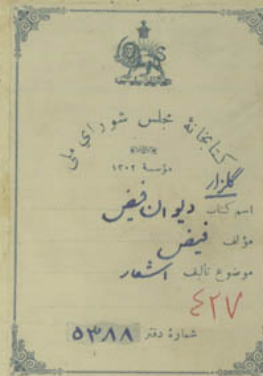 کتابخانهٔ مجلس شورای ملی
مؤسسهٔ ۱۳۰۲
گلزار
اسم کتاب دیوان فیض
مؤلف فیض
موضوع تألیف اشعار
۴۲۷
شمارهٔ دفتر ۵۳۸۸